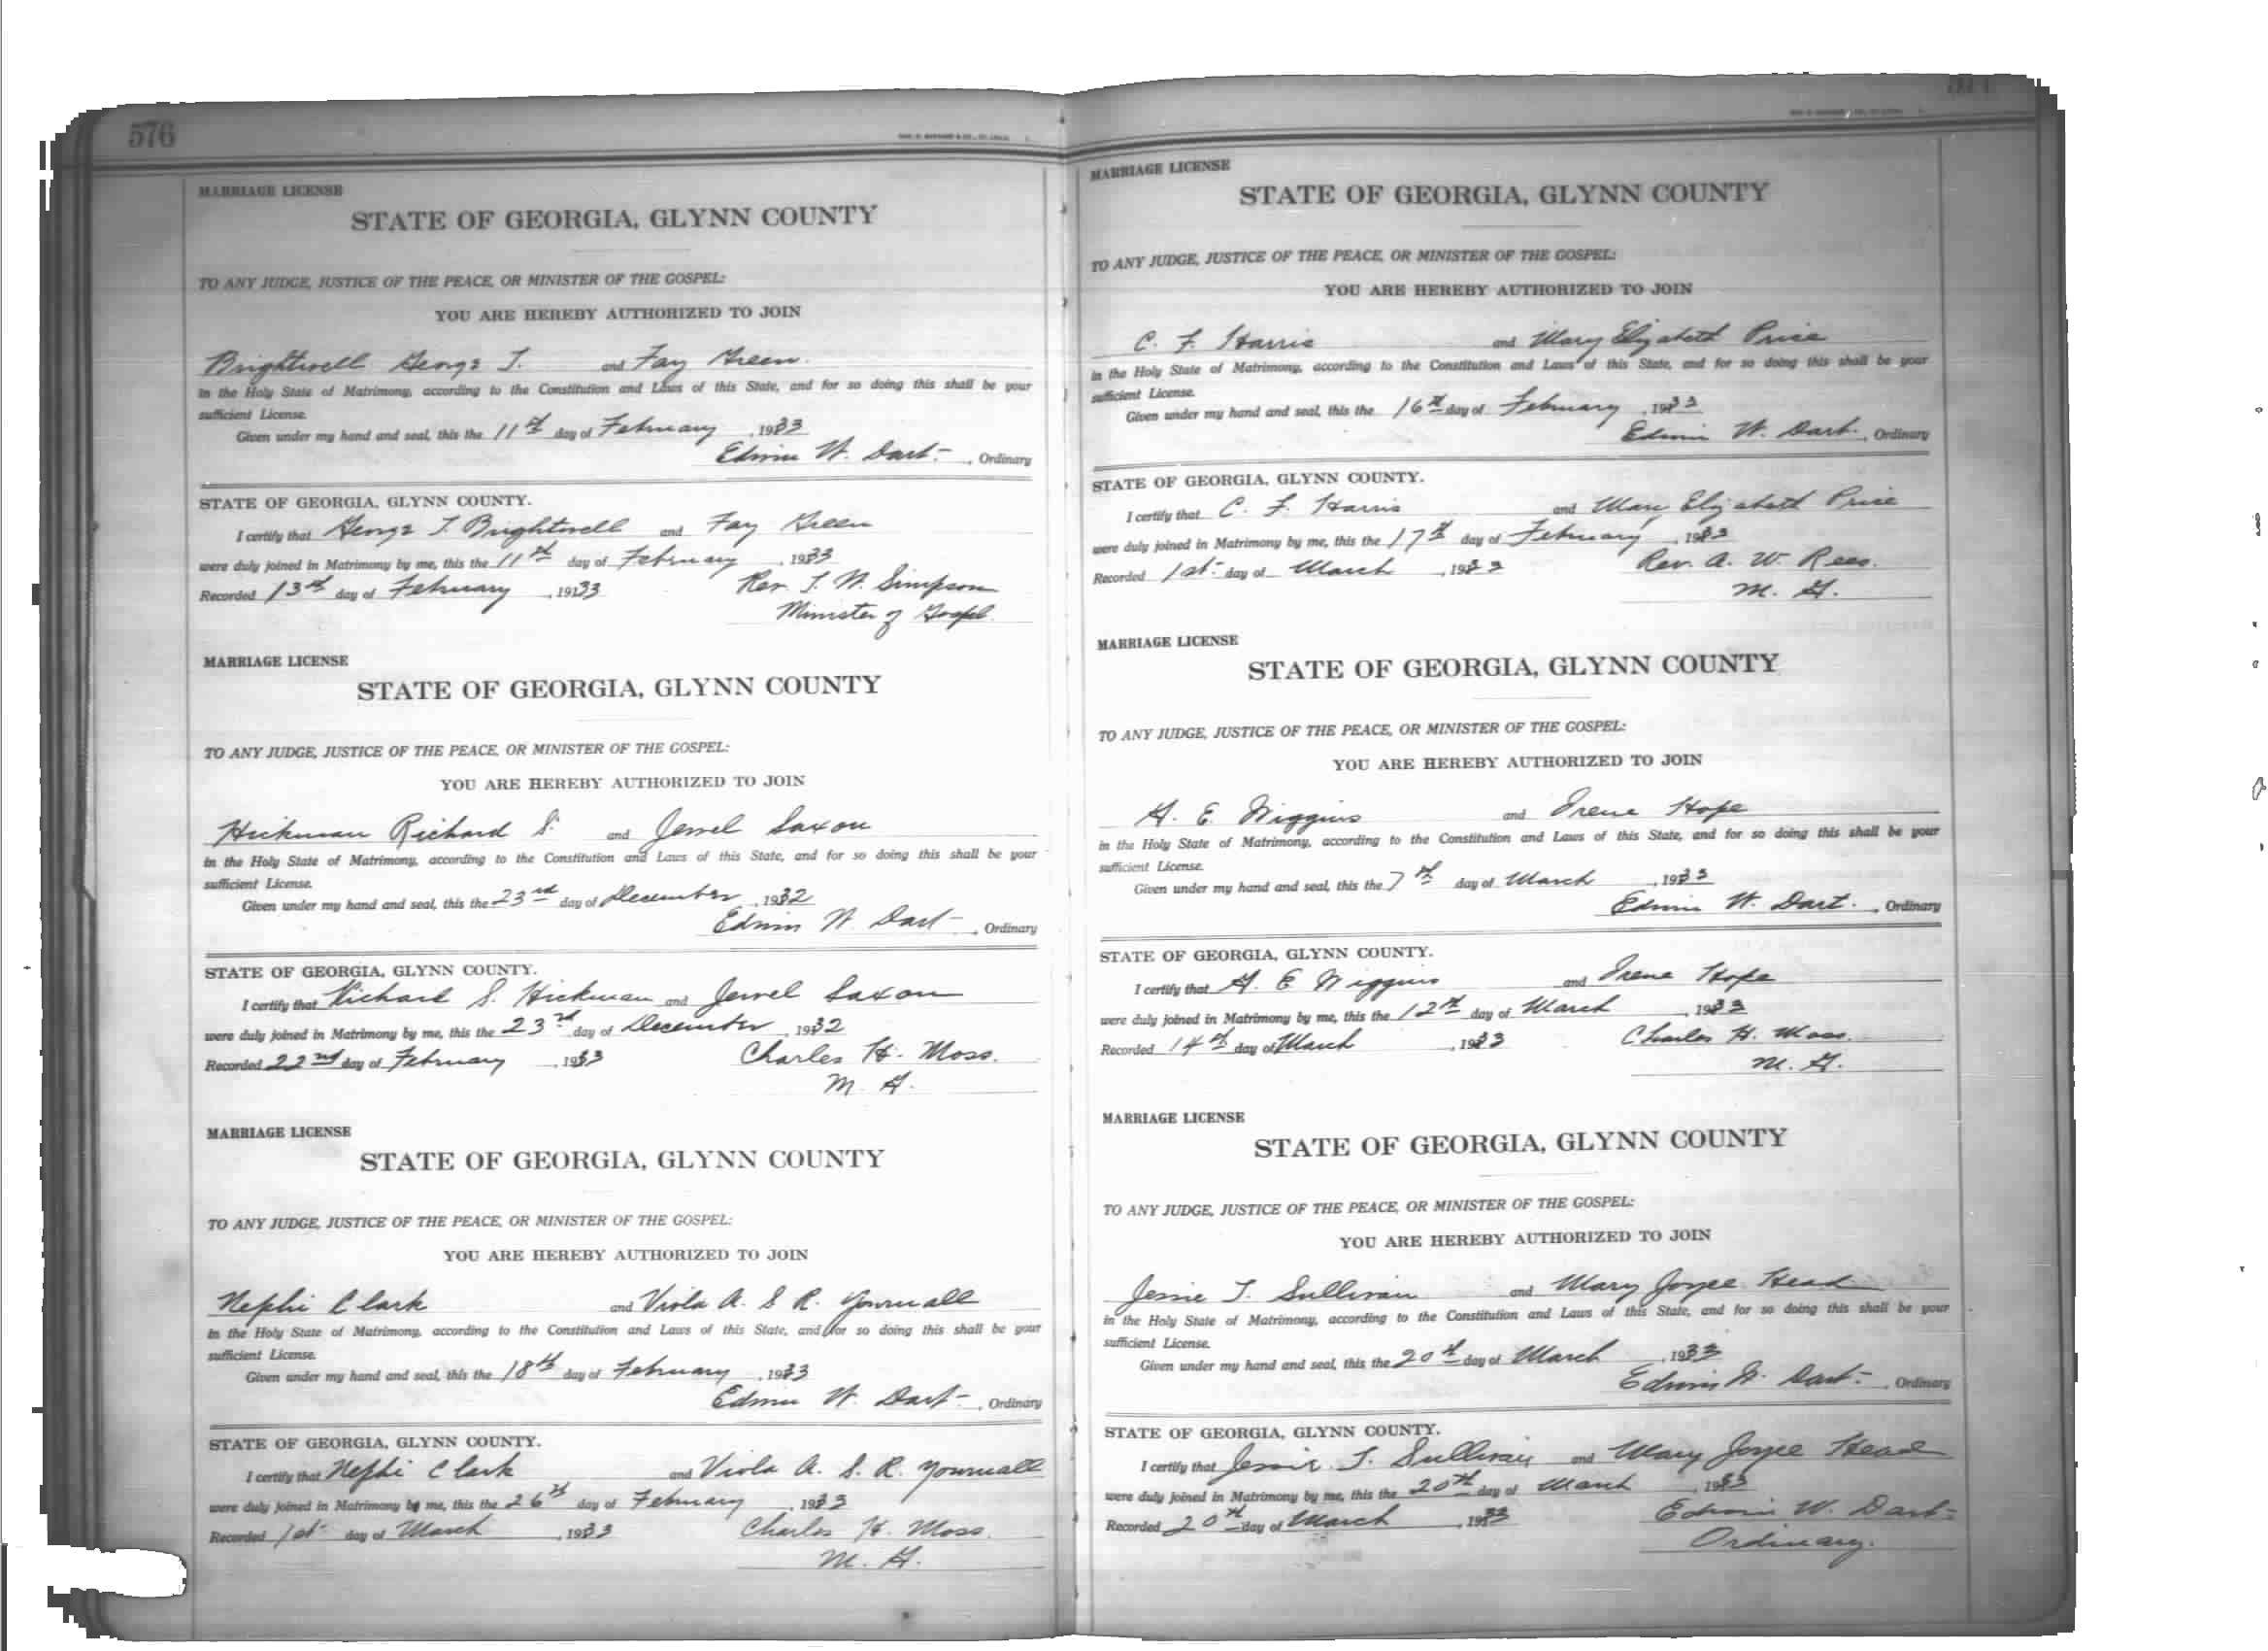 576
MARRIAGE LICENSE
STATE OF GEORGIA, GLYNN COUNTY
TO ANY JUDGE, JUSTICE OF THE PEACE, OR MINISTER OF THE GOSPEL:
YOU ARE HEREBY AUTHORIZED TO JOIN
Brightwell George T. and Fay Green.
in the Holy State of Matrimony, according to the Constitution and Laws of this State, and for so doing this shall be your
sufficient License.
Given under my hand and seal, this the 11th day of February, 1933
Edwin W. Dart, Ordinary
STATE OF GEORGIA, GLYNN COUNTY.
I certify that George T. Brightwell and Fay Green
were duly joined in Matrimony by me, this the 11th day of February, 1933
Recorded 13th day of February, 1933 Rev. T. W. Simpson
Minister of Gospel.
MARRIAGE LICENSE
STATE OF GEORGIA, GLYNN COUNTY
TO ANY JUDGE, JUSTICE OF THE PEACE, OR MINISTER OF THE GOSPEL:
YOU ARE HEREBY AUTHORIZED TO JOIN
Hickman Richard S. and Jewel Saxon
in the Holy State of Matrimony, according to the Constitution and Laws of this State, and for so doing this shall be your
sufficient License.
Given under my hand and seal, this the 23rd day of December, 1932
Edwin W. Dart, Ordinary
STATE OF GEORGIA, GLYNN COUNTY.
I certify that Richard S. Hickman and Jewel Saxon
were duly joined in Matrimony by me, this the 23rd day of December, 1932
Recorded 22nd day of February, 1933 Charles H. Moss.
M. G.
MARRIAGE LICENSE
STATE OF GEORGIA, GLYNN COUNTY
TO ANY JUDGE, JUSTICE OF THE PEACE, OR MINISTER OF THE GOSPEL:
YOU ARE HEREBY AUTHORIZED TO JOIN
Nephi Clark and Viola A. S. R. Yownall
in the Holy State of Matrimony, according to the Constitution and Laws of this State, and for so doing this shall be your
sufficient License.
Given under my hand and seal, this the 18th day of February, 1933
Edwin W. Dart, Ordinary
STATE OF GEORGIA, GLYNN COUNTY.
I certify that Nephi Clark and Viola A. S. R. Yownall
were duly joined in Matrimony by me, this the 26th day of February, 1933
Recorded 1st day of March, 1933 Charles H. Moss.
M. G.
MARRIAGE LICENSE
STATE OF GEORGIA, GLYNN COUNTY
TO ANY JUDGE, JUSTICE OF THE PEACE, OR MINISTER OF THE GOSPEL:
YOU ARE HEREBY AUTHORIZED TO JOIN
C. F. Harris and Mary Elizabeth Price
in the Holy State of Matrimony, according to the Constitution and Laws of this State, and for so doing this shall be your
sufficient License.
Given under my hand and seal, this the 16th day of February, 1933
Edwin W. Dart., Ordinary
STATE OF GEORGIA, GLYNN COUNTY.
I certify that C. F. Harris and Mary Elizabeth Price
were duly joined in Matrimony by me, this the 17th day of February, 1933
Recorded 1st day of March, 1933 Rev. A. W. Rees.
M. G.
MARRIAGE LICENSE
STATE OF GEORGIA, GLYNN COUNTY
TO ANY JUDGE, JUSTICE OF THE PEACE, OR MINISTER OF THE GOSPEL:
YOU ARE HEREBY AUTHORIZED TO JOIN
G. E. Wiggins and Irene Hope
in the Holy State of Matrimony, according to the Constitution and Laws of this State, and for so doing this shall be your
sufficient License.
Given under my hand and seal, this the 7th day of March, 1933
Edwin W. Dart., Ordinary
STATE OF GEORGIA, GLYNN COUNTY.
I certify that G. E Wiggins and Irene Hope
were duly joined in Matrimony by me, this the 12th day of March, 1933
Recorded 14th day of March, 1933 Charles H. Moss.
M. G.
MARRIAGE LICENSE
STATE OF GEORGIA, GLYNN COUNTY
TO ANY JUDGE, JUSTICE OF THE PEACE, OR MINISTER OF THE GOSPEL:
YOU ARE HEREBY AUTHORIZED TO JOIN
Jessie T. Sullivan and Mary Joyce Head
in the Holy State of Matrimony, according to the Constitution and Laws of this State, and for so doing this shall be your
sufficient License.
Given under my hand and seal, this the 20th day of March, 1933
Edwin W. Dart, Ordinary
STATE OF GEORGIA, GLYNN COUNTY.
I certify that Jessie T. Sullivan and Mary Joyce Head
were duly joined in Matrimony by me, this the 20th day of March, 1933
Recorded 20th day of March, 1933 Edwin W. Dart
Ordinary.